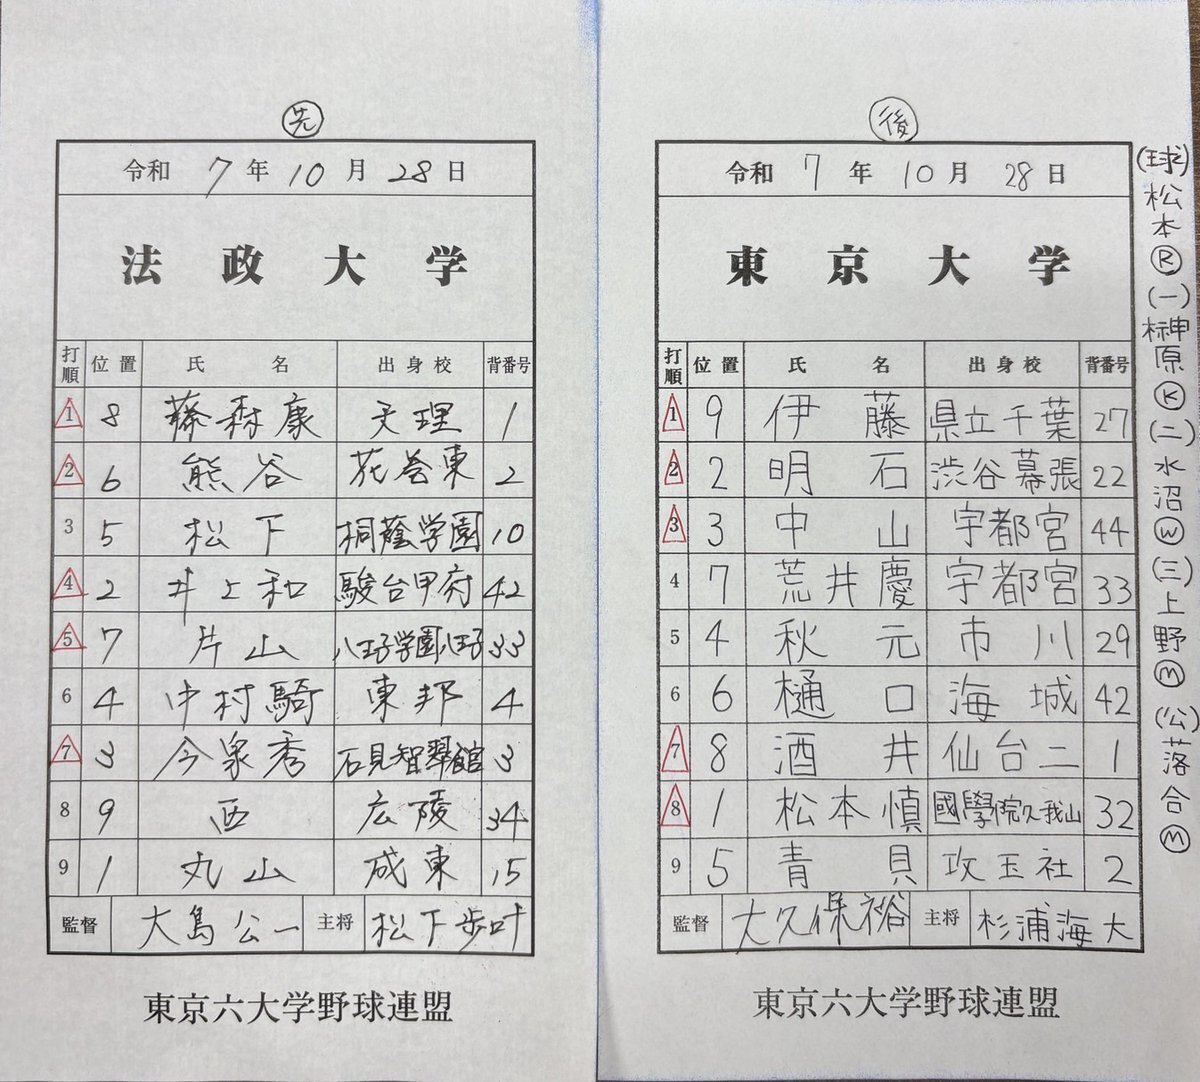 先
令和 7 年 10 月 28 日
法政大学
打順 位置 氏名 出身校 背番号
1 8 藤森康 天理 1
2 6 熊谷 花巻東 2
3 5 松下 桐蔭学園 10
4 2 井上和 駿台甲府 42
5 7 片山 八王子学園八王子 33
6 4 中村騎 東邦 4
7 3 今泉秀 石見智翠館 3
8 9 西 広陵 34
9 1 丸山 成東 15
監督 大島公一 主将 松下歩叶
東京六大学野球連盟
後
令和 7 年 10 月 28 日
東京大学
打順 位置 氏名 出身校 背番号
1 9 伊藤 県立千葉 27
2 2 明石 渋谷幕張 22
3 3 中山 宇都宮 44
4 7 荒井慶 宇都宮 33
5 4 秋元 市川 29
6 6 樋口 海城 42
7 8 酒井 仙台二 1
8 1 松本慎 國學院久我山 32
9 5 青貝 攻玉社 2
監督 大久保裕 主将 杉浦海大
東京六大学野球連盟
(球)松本Ⓡ(一)榊原Ⓚ(二)水沼Ⓦ(三)上野Ⓜ(公)落合Ⓜ